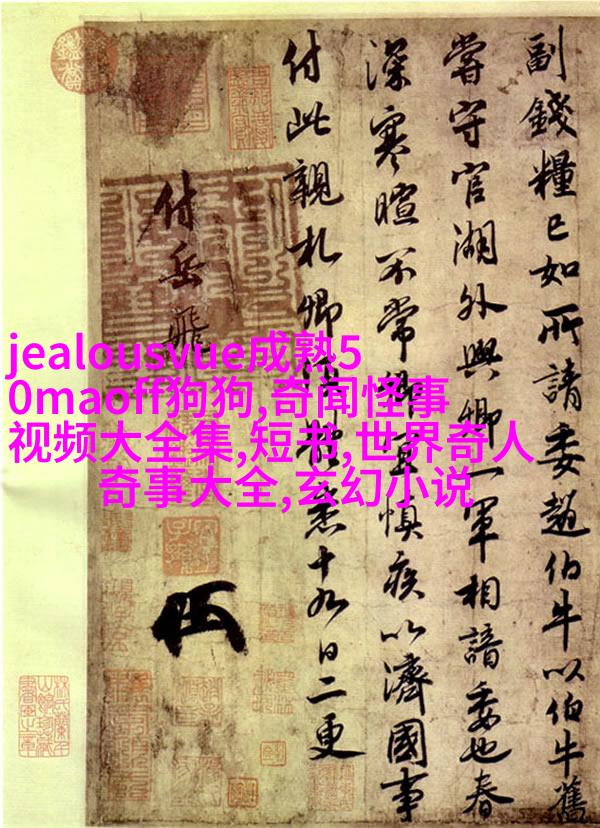 副錢糧已如所請委趙伯牛以伯牛舊
嘗守官湖外與卿一軍相諳委也春
深寒暄不常卿宜慎疾以濟國事
付此親札卿須體悉十九日二更
付岳飛
jealousvue成熟5
0maoff狗狗,奇闻怪事
视频大全集,短书,世界奇人
奇事大全,玄幻小说